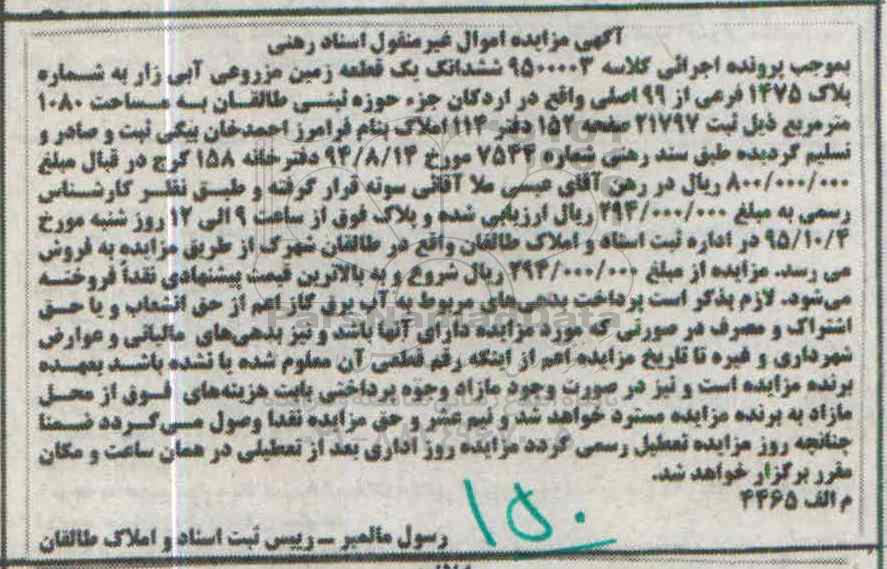 آگهی مزایده اموال غیرمنقول اسناد رهنی
بموجب پرونده اجرائی کلاسه ۹۵۰۰۰۰۳ ششدانگ یک قطعه زمین مزروعی آبی زار به شماره
پلاک ۱۴۷۵ فرعی از ۹۹ اصلی واقع در اردکان جزء حوزه ثبتی طالقان به مساحت ۱۰۸۰
مترمربع ذیل ثبت ۲۱۷۹۷ صفحه ۱۵۲ دفتر ۱۱۴ املاک بنام فرامرز احمدخان بیگی ثبت و صادر و
تسلیم گردیده طبق سند رهنی شماره ۷۵۴۴ مورخ ۹۴/۸/۱۴ دفترخانه ۱۵۸ کرج در قبال مبلغ
۸۰۰/۰۰۰/۰۰۰ ریال در رهن آقای عیسی ملا آقائی سوته قرار گرفته و طبق نظر کارشناس
رسمی به مبلغ ۲۹۴/۰۰۰/۰۰۰ ریال ارزیابی شده و پلاک فوق از ساعت ۹ الی ۱۲ روز شنبه مورخ
۹۵/۱۰/۴ در اداره ثبت اسناد و املاک طالقان واقع در طالقان شهرک از طریق مزایده به فروش
می رسد. مزایده از مبلغ ۲۹۴/۰۰۰/۰۰۰ ریال شروع و به بالاترین قیمت پیشنهادی نقداً فروخته
می‌شود. لازم بذکر است پرداخت بدهی‌های مربوط به آب برق گاز اعم از حق انشعاب و یا حق
اشتراک و مصرف در صورتی که مورد مزایده دارای آنها باشد و نیز بدهی‌های مالیاتی و عوارض
شهرداری و غیره تا تاریخ مزایده اعم از اینکه رقم قطعی آن معلوم شده یا نشده باشد بعهده
برنده مزایده است و نیز در صورت وجود مازاد وجوه پرداختی بابت هزینه‌های فوق از محل
مازاد به برنده مزایده مسترد خواهد شد و نیم عشر و حق مزایده نقدا وصول می‌گردد ضمنا
چنانچه روز مزایده تعطیل رسمی گردد مزایده روز اداری بعد از تعطیلی در همان ساعت و مکان
مقرر برگزار خواهد شد.
م الف ۴۴۶۵
۱۵۰
رسول مالمیر ــ رییس ثبت اسناد و املاک طالقان
ParsNamadData